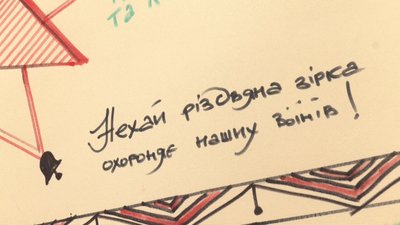 та
Нехай різдвяна зірка
охороняє наших воїнів!